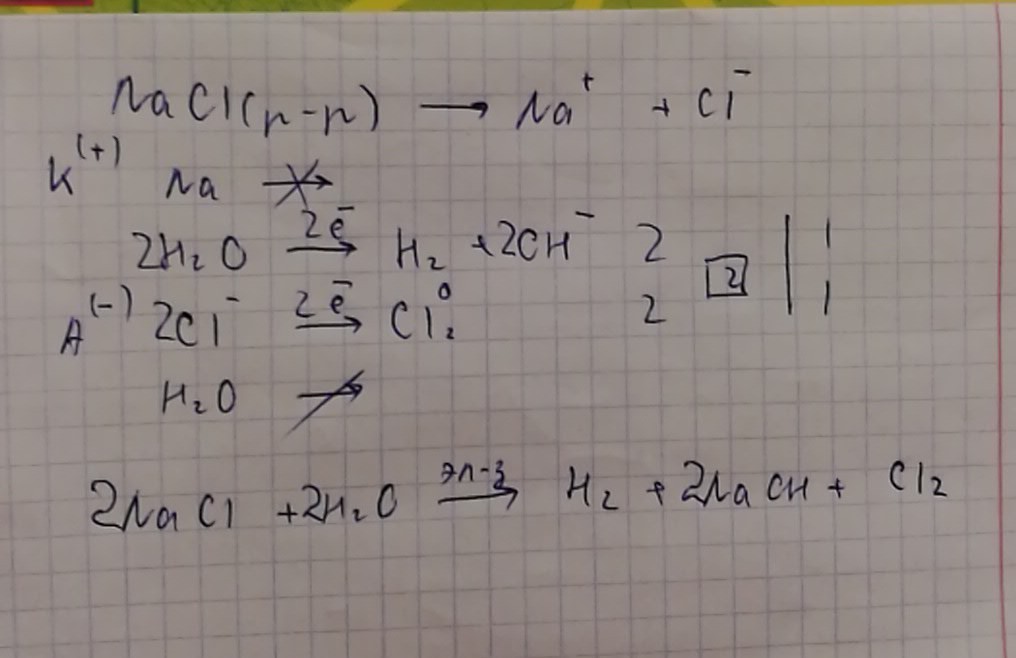 NaCl(р-р) → Na⁺ + Cl⁻
K⁽⁺⁾ Na ↛
2H₂O —2ē→ H₂ + 2OH⁻ 2 | 2 | 1
A⁽⁻⁾ 2Cl⁻ —2ē→ Cl₂⁰ 2 | 1
H₂O ↛
2NaCl + 2H₂O —эл-з→ H₂ + 2NaOH + Cl₂